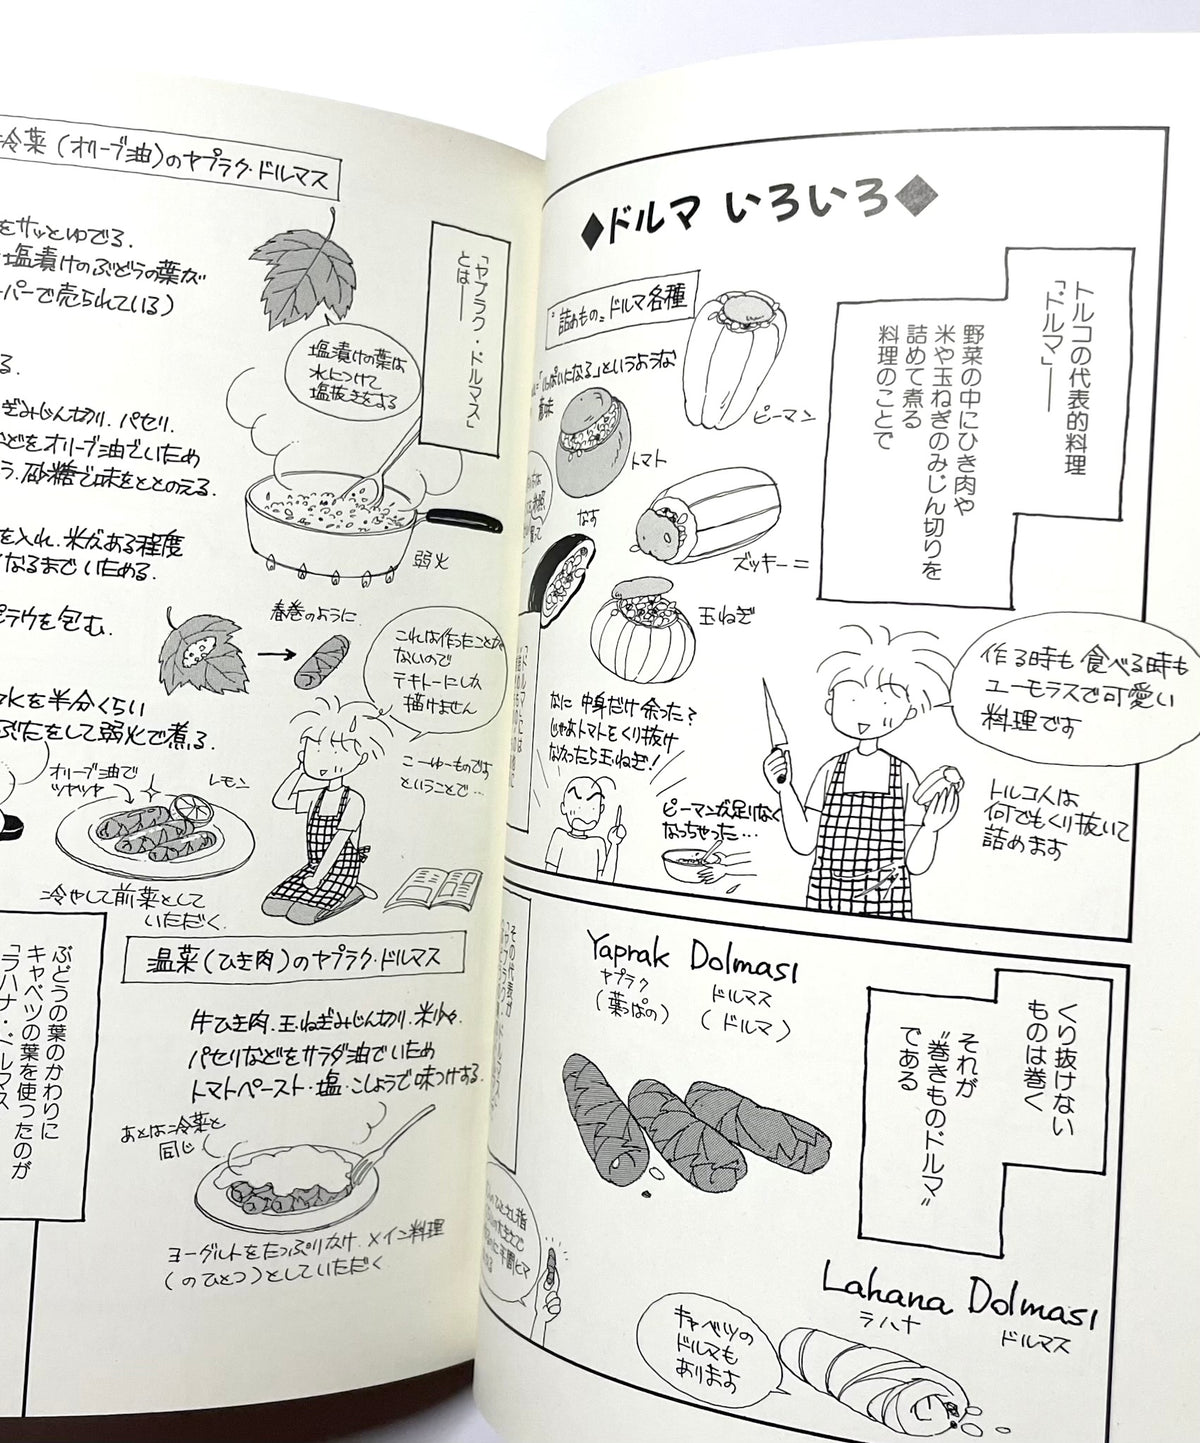 ◆ドルマ いろいろ◆
トルコの代表的料理
「ドルマ」――
野菜の中にひき肉や
米や玉ねぎのみじん切りを
詰めて煮る
料理のことで
“詰めもの”ドルマ各種
「いっぱいになる」というような
意味
ピーマン
トマト
なす
ズッキーニ
玉ねぎ
作る時も食べる時も
ユーモラスで可愛い
料理です
トルコ人は
何でもくり抜いて
詰めます
なに中身だけ余った?
じゃあトマトをくり抜け
なかったら玉ねぎ!
ピーマンが足りなく
なっちゃった…
くり抜けない
ものは巻く
それが
“巻きものドルマ”
である
Yaprak Dolması
ヤプラク ドルマス
(葉っぱの) (ドルマ)
その代表が
Lahana Dolması
ラハナ ドルマス
キャベツの
ドルマも
あります
「ヤプラク・ドルマス」
とは――
冷菜(オリーブ油)のヤプラク・ドルマス
をサッとゆでる.
塩漬けのぶどうの葉が
ーパーで売られている)
塩漬けの葉は
水につけて
塩抜きをする
る.
ぎみじん切り. パセリ.
などをオリーブ油でいため
う. 砂糖で味をととのえる.
弱火
を入れ. 米がある程度
なるまでいためる.
ピラウを包む.
春巻のように
これは作ったことが
ないので
テキトーにしか
描けません
水を半分くらい
ぶたをして弱火で煮る.
オリーブ油で
ツヤツヤ
レモン
こーゆーものです
ということで…
冷やして前菜として
いただく.
温菜(ひき肉)のヤプラク・ドルマス
牛ひき肉. 玉ねぎみじん切り. 米少々.
パセリなどをサラダ油でいため
トマトペースト・塩・こしょうで味つけする.
あとは冷菜と
同じ
ヨーグルトをたっぷりかけ. メイン料理
(のひとつ)としていただく
ぶどうの葉のかわりに
キャベツの葉を使ったのが
「ラハナ・ドルマス